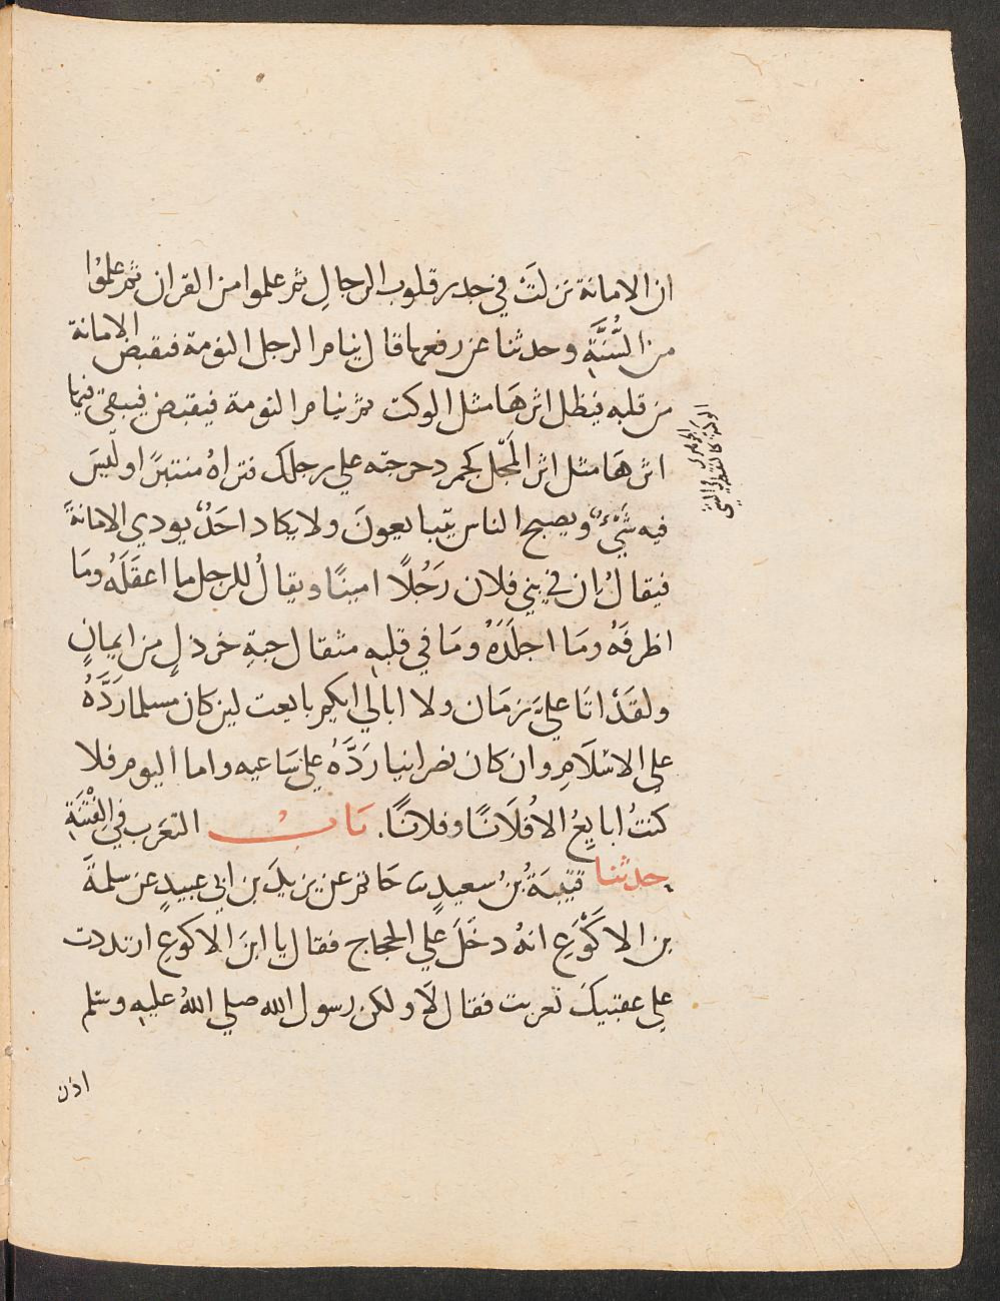 ان الامانة نزلتْ في جدر قلوب الرجالِ ثم علموا من القران ثم علمُوا
من السُّنَّةِ وحدثنا عن رفعها قال ينام الرجل النومة فتقبض الامانة
من قلبه فيظل اثرهَا مثل الوكت ثم ينام النومة فيقبض فيبقي فيها
اثرهَا مثل اثر المَجْل كجمر دحرجته علي رجلك فتراهُ منتبرًا وليسَ
فيه شَيْءٌ ويصبح الناس يتبايعونَ ولا يكاد احَدٌ يودي الامانةَ
فيقالُ ان في بني فلان رَجُلًا امينًا ويقالُ للرجل ما اعقَلَهُ ومَا
اظرفَهُ ومَا اجلَدَهُ ومَا في قلبِهِ مثقال حبةِ خردلٍ من ايمانٍ
ولقَدْ اتَا عليَّ زمَان ولا ابالي ايكم بايعت لين كان مسلما رَدَّهُ
علي الاسْلَامِ وان كان نصرانيا ردَّهُ علي سَاعيه واما اليوم فلا
كنتُ ابايعُ الا فُلَانًا وفلانًا. بَابُ التعَرب في الفتْنَةِ
حدثنا قتيبَةُ بنُ سعيدٍ حَاتم عن يزيدَ بن ابي عبيدٍ عن سلمةَ
بن الاكْوَعِ انهُ دخَلَ علَي الحجاج فقال يا ابنَ الاكوعِ ارتددت
علي عقبيكَ تعربت فقال لَا ولكن رسول الله صلي اللهُ عليهِ وسلم
اذن